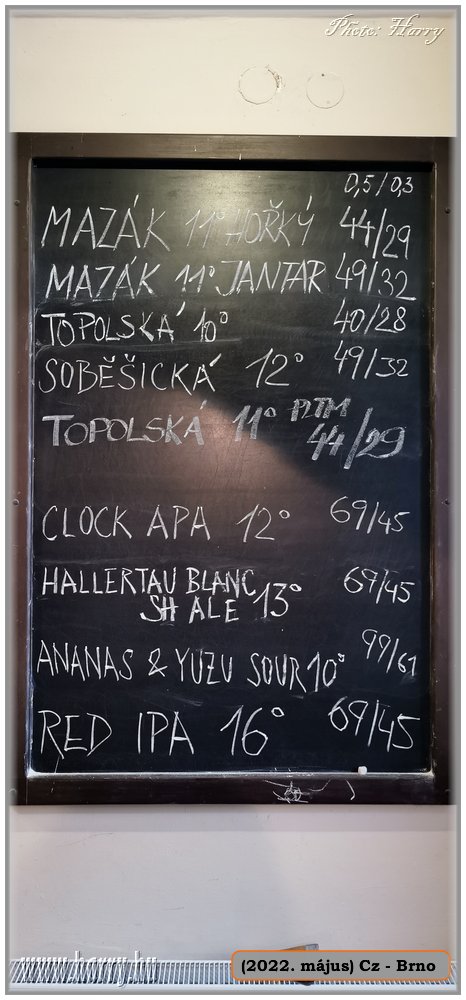 Photo: Harry
0,5/0,3
MAZÁK 11° HOŘKÝ 44/29
MAZÁK 11° JANTAR 49/32
TOPOLSKÁ 10° 40/28
SOBĚŠICKÁ 12° 49/32
TOPOLSKÁ 11° 44/29
CLOCK APA 12° 69/45
HALLERTAU BLANC
SH ALE 13° 69/45
ANANAS & YUZU SOUR 10° 99/61
RED IPA 16° 69/45
www.harry.hu
(2022. május) Cz - Brno